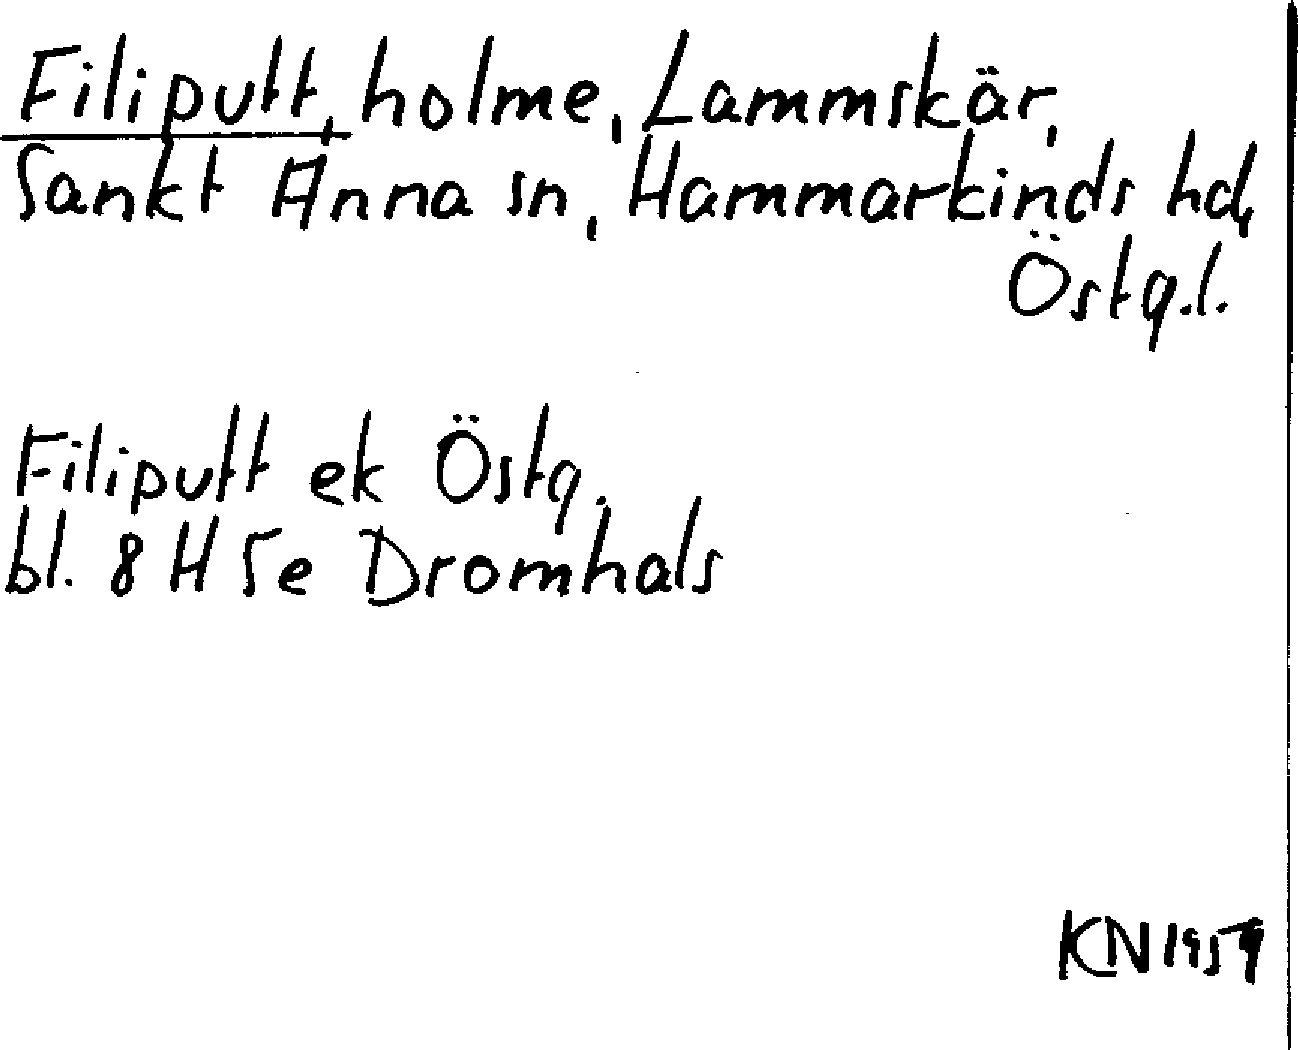 Filiputt, holme, Lammskär,
Sankt Anna sn, Hammarkinds hd,
Östg.l.
Filiputt ek Östg.
bl. 8 H 5e Dromhals
KN 1959